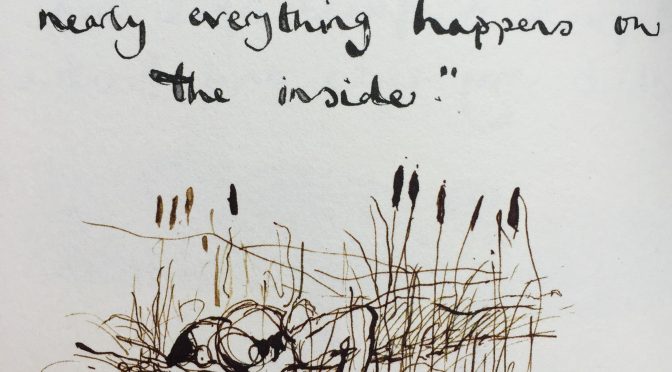 nearly everything happens on
the inside."